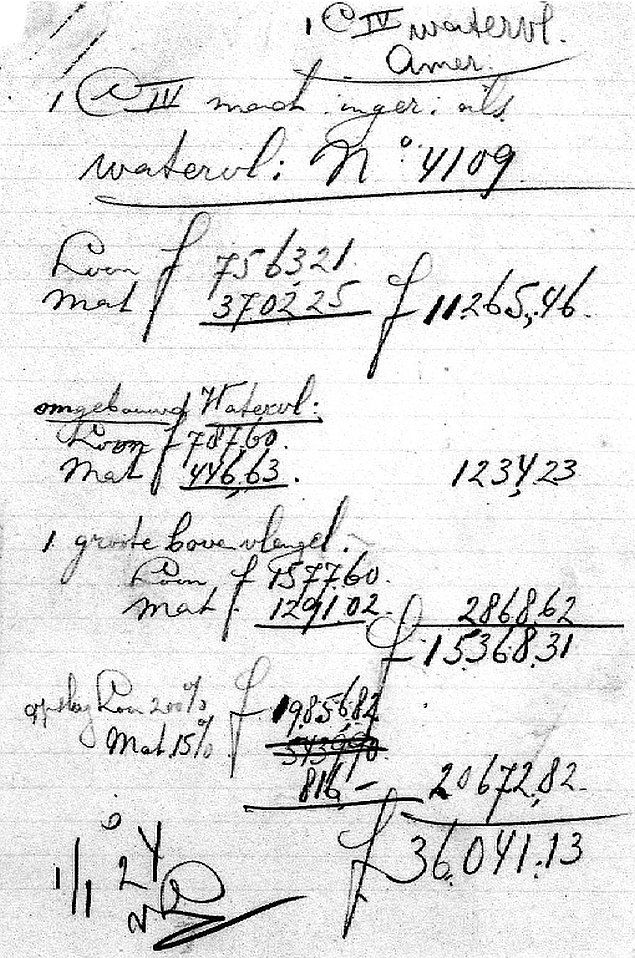 1 C IV watervl.
Amer.
1 C IV mach. inger. als
watervl: No 4109
Loon f 7563,21
Mat 3702,25 f 11265,46.
omgebouwd Watervl:
Loon f 787,60.
Mat f 446,63. 1234,23
1 groote bovenvleugel.
Loon f 1577.60.
Mat f. 1291.02. 2868,62
f 15368,31
opslag Loon 200% f 19856,82
Mat 15%
816,- 20672,82.
f 36.041.13
1/1 24